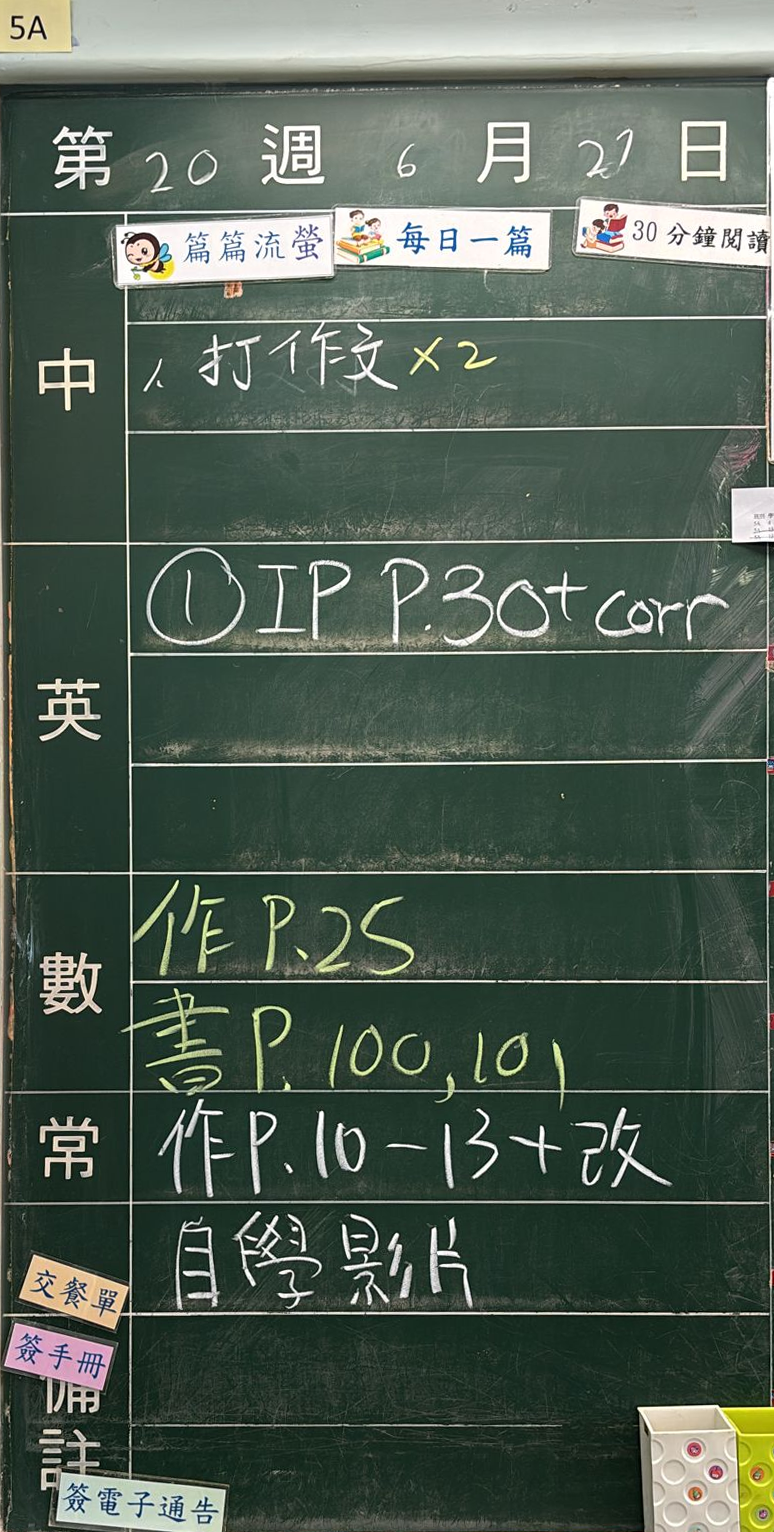 5A
第 20 週 6 月 27 日
篇篇流螢 每日一篇 30分鐘閱讀
中
1. 打作文 x2
英
① IP P.30 + corr
數
作 P.25
書 P. 100, 101
常
作 P.10-13+改
自學影片
交餐單
簽手冊
備註
簽電子通告